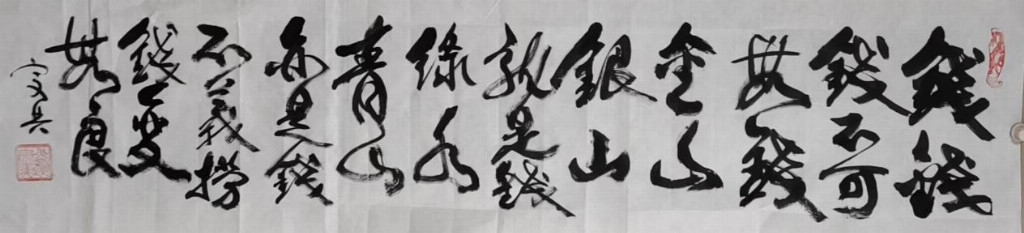 錢錢
錢不可
無錢
金山
銀山
就是錢
綠水
青山
亦是錢
不義撈
錢变
無良